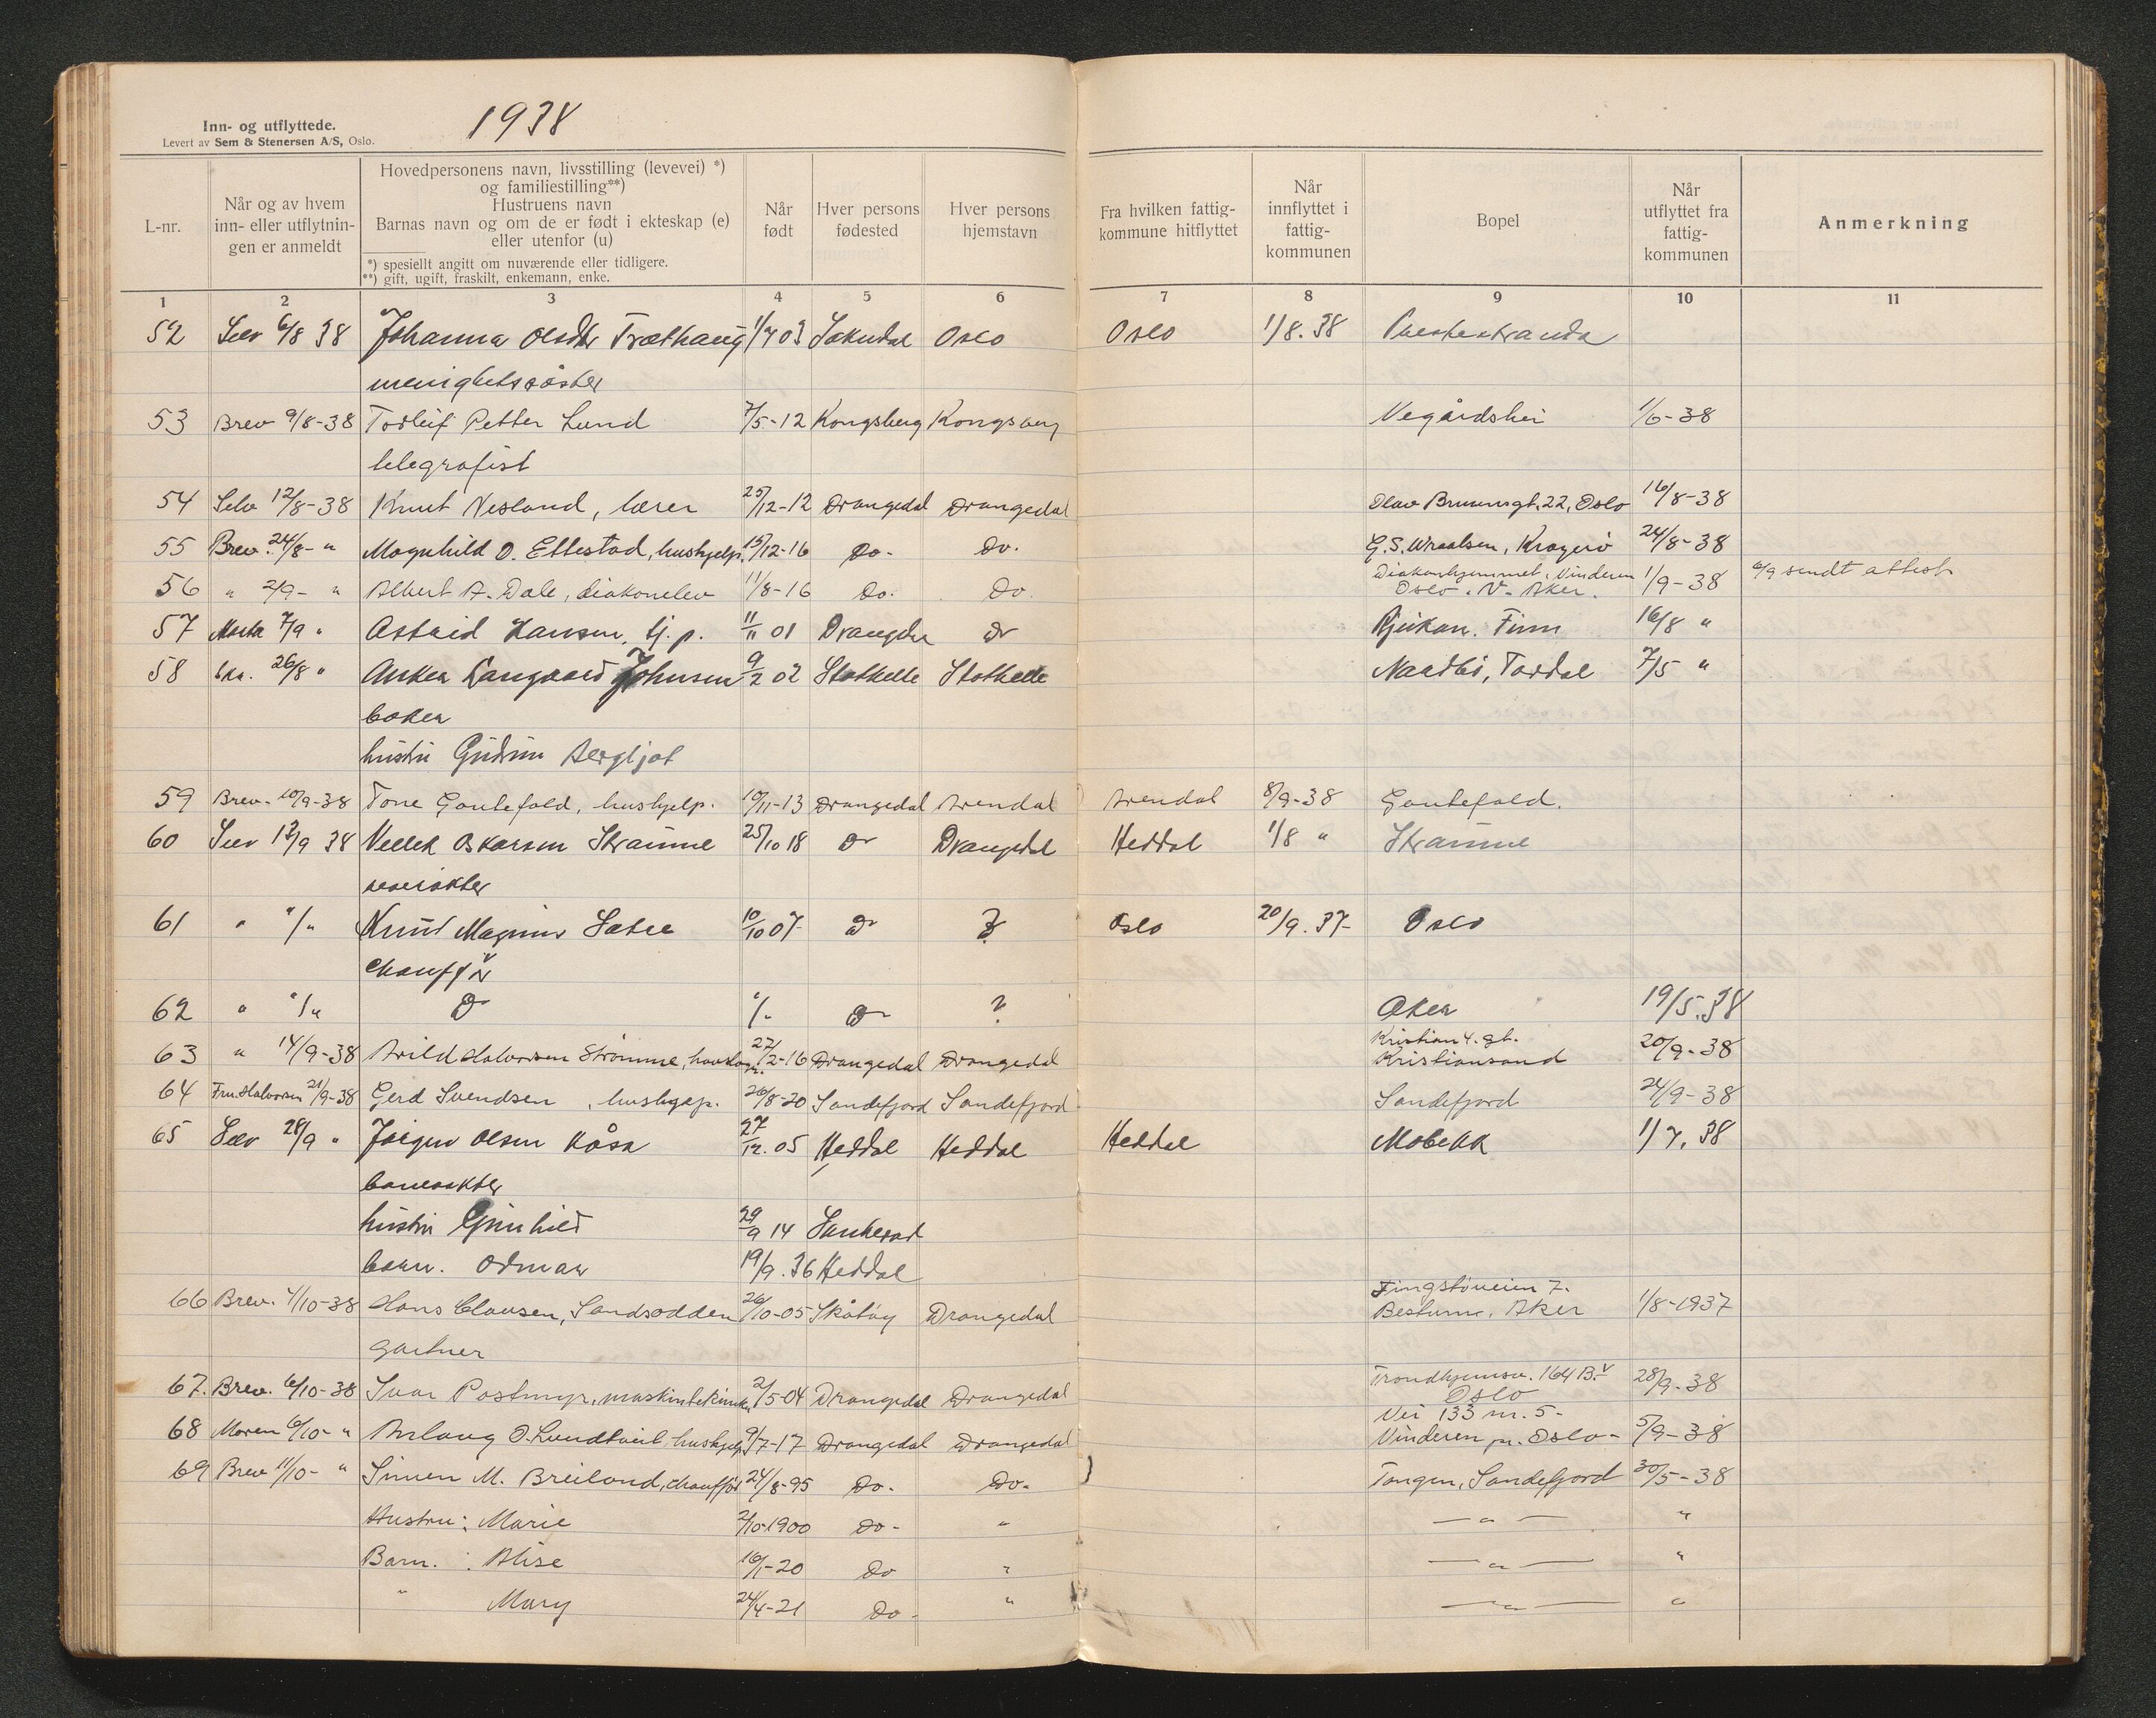 1938
Inn- og utflyttede.
Levert av Sem & Stenersen A/S, Oslo.
L-nr.
Når og av hvem
inn- eller utflytnin-
gen er anmeldt
Hovedpersonens navn, livsstilling (levevei) *)
og familiestilling**)
Hustruens navn
Barnas navn og om de er født i ekteskap (e)
eller utenfor (u)
*) spesielt angitt om nuværende eller tidligere.
**) gift, ugift, fraskilt, enkemann, enke.
Når
født
Hver persons
fødested
Hver persons
hjemstavn
Fra hvilken fattig-
kommune hitflyttet
Når
innflyttet i
fattig-
kommunen
Bopel
Når
utflyttet fra
fattig-
kommunen
Anmerkning
1 2 3 4 5 6 7 8 9 10 11
52 Selv 6/8 38 Johanna Olsdtr Træthaug 1/7 03 Oslo Oslo 1/8.38
menighetssøster
53 Brev 9/8-38 Torleif Petter Lund 7/5-12 Kongsberg Kongsberg Vegårdshei 1/6-38
telegrafist
54 Selv 12/8-38 Knut Nesland, lærer 25/12-12 Drangedal Drangedal Olav Brunnsgt. 22, Oslo 16/8-38
55 Brev. 24/8- " Magnhild O. Ettestad, hushjelp. 15/12-16 Do- Do. G.S. Wraalsen, Kragerö 24/8-38
56 " 2/9- " Albert A. Dale, diakonelev 11/8-16 Do. Do Diakonhjemmet, Vinderen 1/9-38 6/9 sendt attest
Oslo. V. Aker.
57 7/9 " Astrid Hansen, tj. p. 11/11 01 Drangedal Do Rjukan. Tinn 16/8 "
58 26/8 " Anker Langaard Johnsen 9/2 02 Stathelle Stathelle Tørdal 7/5 "
baker
hustru Gudrun Bergljot
59 Brev. 10/9-38 Tone Gautefald, hushjelp. 10/11-13 Drangedal Arendal Arendal 8/9-38 Gautefald.
60 Selv 13/9 38 Oskarsen Straume 25/10 18 Do Drangedal Heddal 1/8 " Straume
61 " "/" Knud Magnus 10/10 07 Do ? Oslo 20/9.37 Oslo
Chauffør
62 " "/" Do "/" Do ? Aker 19/5.38
63 " 14/9-38 Arild Halvorsen Strømme, 27/2-16 Drangedal Drangedal Kristian 4. gt. 20/9-38
Kristiansand
64 Fru Halvorsen 21/9-38 Gerd Svendsen, hushjelp. 26/8-20 Sandefjord Sandefjord Sandefjord 24/9-38
65 Selv 28/9 " Jørgen Olsen Kåsa 27/12.05 Heddal Heddal Heddal Mobekk 1/7.38
banevokter
hustru Gunhild 29/9 14 Lunherad
barn. Odmar 19/9.36 Heddal
66 Brev. 1/10-38 Hans Clausen, Sandsodden 26/10-05 Skåtøy Drangedal Tingstuveien 7. 1/8-1937
Bestum, Aker
Gartner
67. Brev. 6/10-38 Ivar Postmyr, maskintekniker 2/5-04 Drangedal Drangedal Trondhjemsv. 164 B.V 28/9-38
Oslo
68 Moren 6/10- " Anlaug O. Lundtveit, hushjelp 9/7-17 Drangedal Drangedal Vei 133 nr. 5- 5/9-38
Vinderen pr. Oslo-
69 Brev 11/10- " Simen M. Breiland, chauffør 24/8-95 Do- Do- Tangen, Sandefjord 30/5-38
Hustru: Marie 2/10-1900 Do- " — " — "
Barn.: Alise 16/1-20 Do " — " — "
" Mary 24/4-21 Do- " — " — "